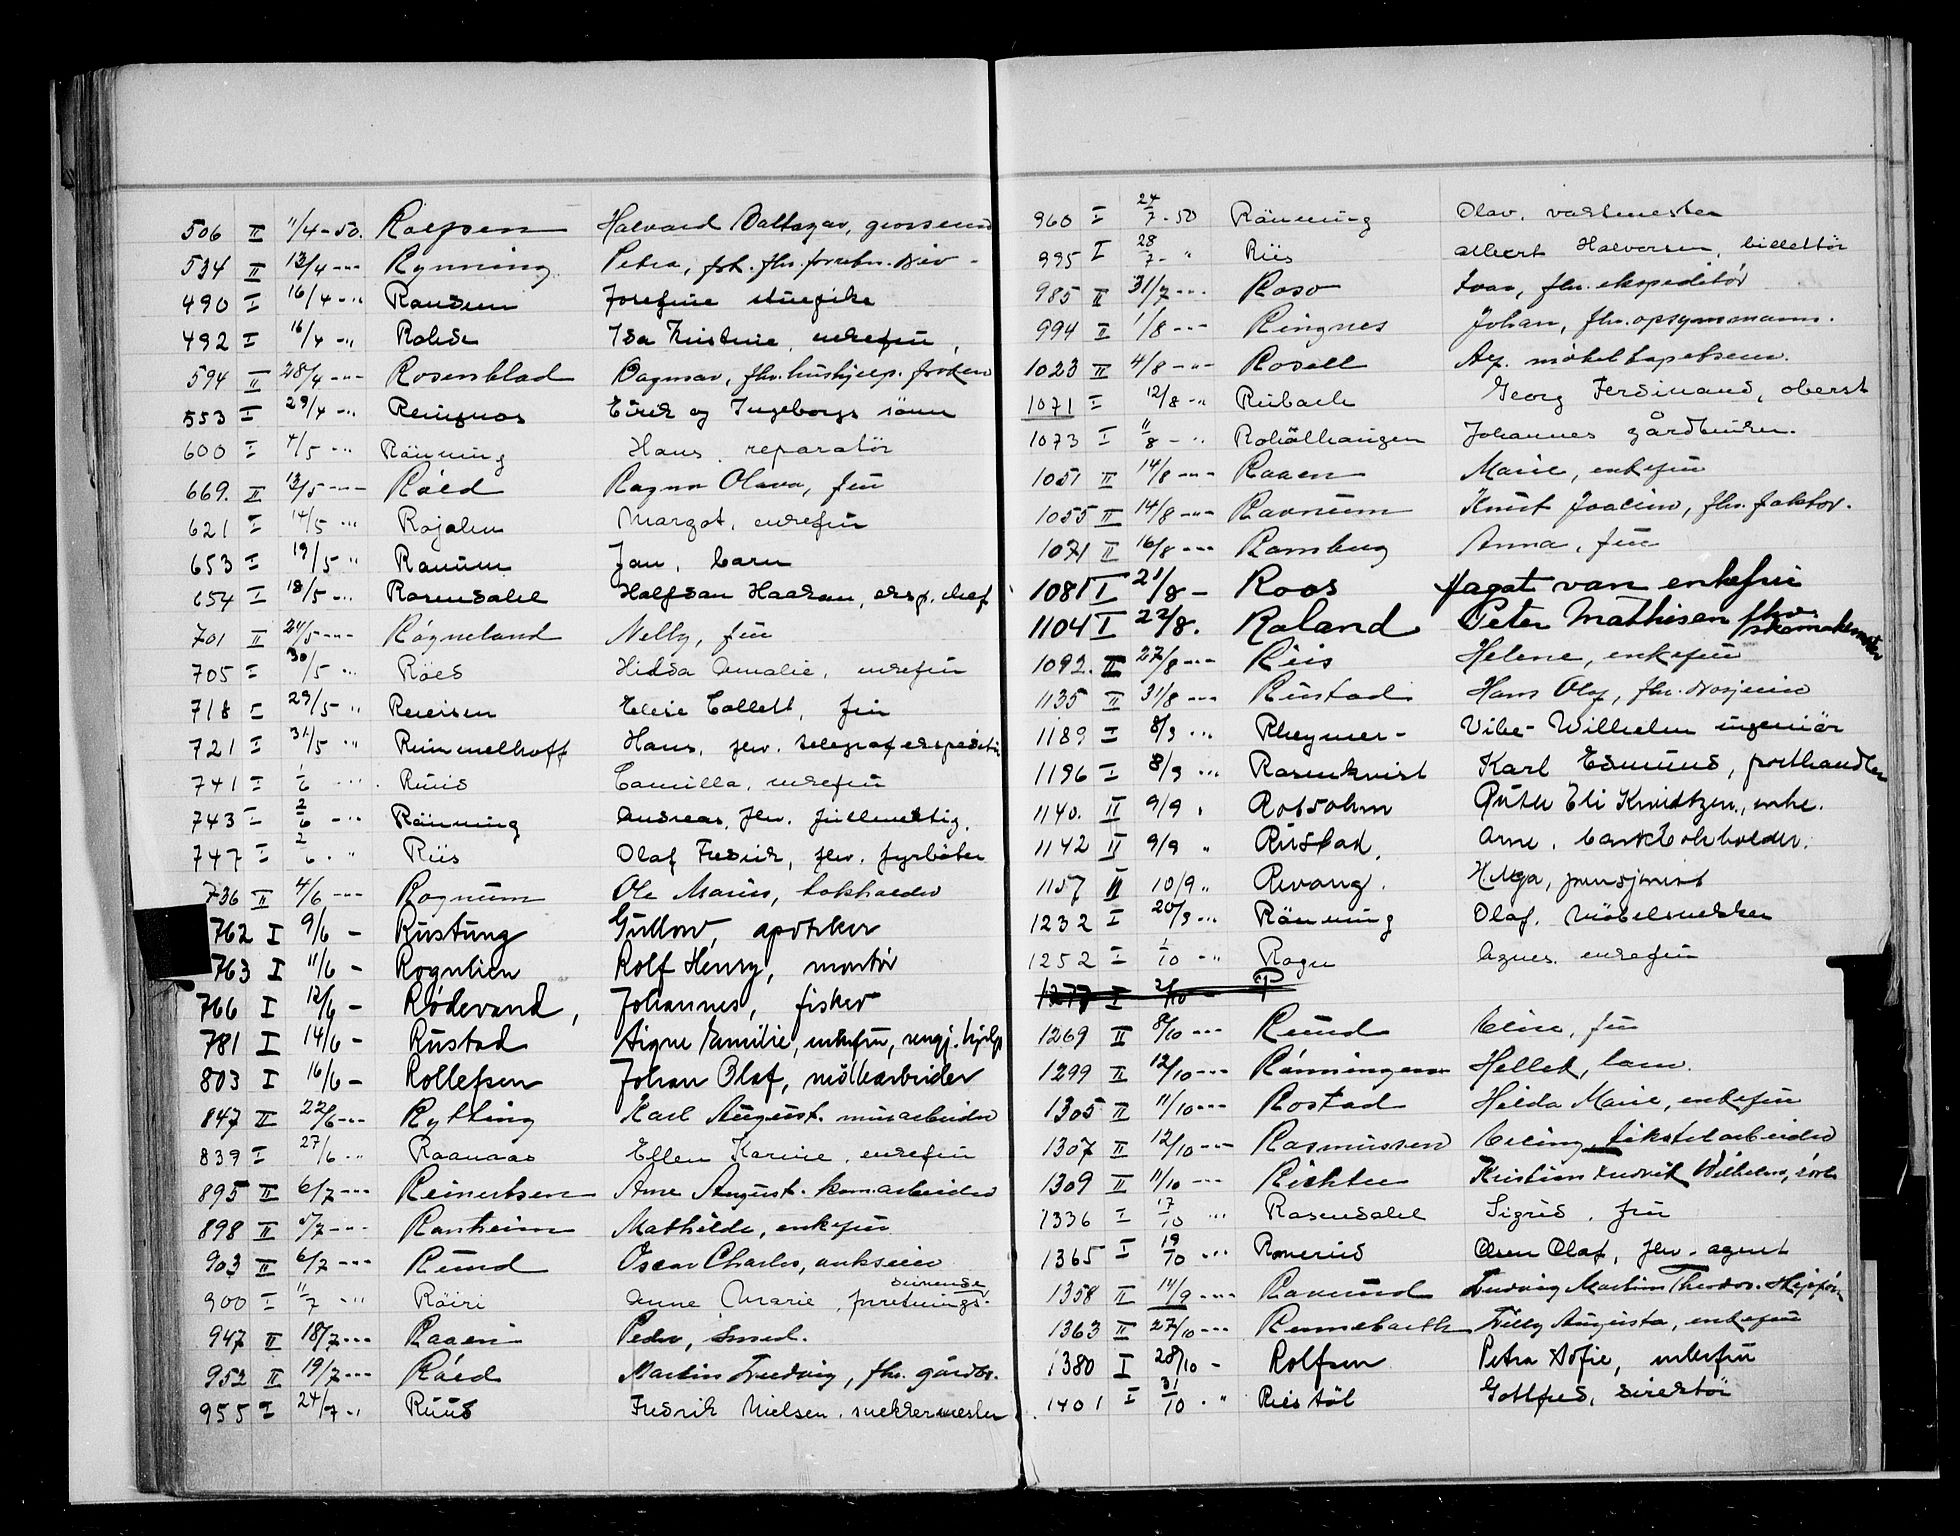 506 II 11/4-50. Roepsen Halvard Baltazar, grosserer
534 II 13/4 --- Rynning Petra, fhv. forretn.
490 I 16/4 -" Josefine stuepike
492 I 16/4 -" Rohde Ida Kristine, enkefru
594 II 28/4 --- Rosenblad Dagmar, fhv. hushjelp.
553 I 29/4 -" Reugnos Eirik og Ingeborgs sönn
600 I 4/5 -" Rönning Hans, reparatör
669. II 13/5 --- Röed Ragna Olava, frü
621 I 14/5 -" Rojahn Margot, enkefrü
653 I 19/5 -" Ranüm Jan, barn
654 I 18/5 -" Rosendahl Halfdan Haakon, eksp. chef
701 II 24/5 --- Rögneland Nelly, frü
705 I 30/5 -" Röed Hilda Amalie, enkefrü
718 I 29/5 -" Collett, frü
721 I 31/5 -" Rummelhoff Hans, fhv. telegrafekspeditör
741 I 1/6 -" Ruud Camilla, enkefrü
743 I 2/6 -" Rönning Andreas, fhv. füllmektig.
747 I 2/6 -" Riis Olaf Fredrik, fhv. fyrböter
736 II 4/6 --- Rognum Ole Marius, bokholder
762 I 9/6 - Rustung Gustav, apoteker
763 I 11/6 - Rognlien Rolf Henry, montör
766 I 12/6 - Rödevand, Johannes, fisker
781 I 14/6 - Rustad Signe Emilie, enkefru, rengj. hjelp
803 I 16/6 - Rollefsen Johan Olaf, möllearbeider
847 II 22/6 --- Rytting Karl August. murarbeider
839 I 27/6 -" Raanaas Ellen Karine, enkefrü
895 II 6/7 --- Reinertsen Arne August.
898 II 5/7 --- Ranheim Mathilde, enkefru
903 II 6/7 --- Rund Oscar Charles,
900 I 11/7 -" Röiri Anne Marie, forretnings-
947 II 18/7 --- Raaen Peder, smed.
952 II 19/7 --- Röed Martin Ludvig, fhv. gårdbr.
955 I 24/7 -" Ruud Fredrik Nielsen, snekkermester
960 I 24/7-50 Rönning Olav, vaktmester
995 I 28/7-" Riis Albert Halvorsen, billettör
985 II 31/7 --- Roso Ivar, fhv. ekspeditör
994 II 1/8 --- Ringnes Johan, fhv. opsynsmann.
1023 II 4/8 --- Rosell
1071 I 12/8 -" Rubach Georg Ferdinand, oberst
1073 I 11/8 -" Roholthaugen Johannes gårdbruker.
1051 II 14/8 --- Raaen Marie, enkefru
1055 II 14/8 --- Ravnum Knut Joacim, fhv. faktor.
1071 II 16/8 --- Ramberg Anna, frü
1081 I 21/8 - Roos Agat van enkefru
1104 I 22/8. Roland Peter Mathisen fhv. skomakermester
1092. II 27/8 --- Riis Helene, enkefru
1135 II 31/8 --- Rustad Hans Olaf, fhv.
1189 I 8/9 -" Rheymer- Vibe- Wilhelm ingeniör
1196 I 8/9 -" Rosenkvist Karl Edmund, porthandler
1140. II 9/9 " Rotvohm Ruth Eli Knudtzen, enke.
1142 II 9/9 " Rustad, Arne, bankbokholder.
1157 II 10/9 " Revang. Helga, pensjonist
1232 I 20/9 -" Rönning Olaf, Möbelsnekker
1252 I 1/10 -" Rogn Agnes, enkefrü
1277 I 2/10 - P
1269 II 8/10 --- Ruud Elise, frü
1299 II 12/10 --- Rönningen Hellek, barn.
1305 II 11/10 --- Rostad Hilda Marie, enkefru
1307 II 12/10 --- Rasmussen Erling, tekstilarbeider
1309 II 11/10 --- Richter Kristian Fredrik Wilhelm,
1336 I 17/10 -" Rosendahl Sigrid, frü
1365 I 19/10 -" Romerud Olsen Olaf, fhv. agent
1358 II 14/9 --- Ravnund Ludvig Martin Theodor. Skipsför
1363 II 27/10 --- Rennebarth Lilly Augusta, enkefru
1380 I 28/10 - Rolfsen Petra Sofie, enkefru
1401 I 31/10 -" Riestöl Gottfred, direktör